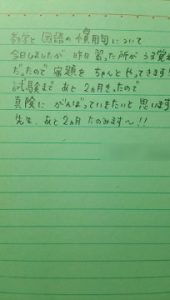 数学と国語の慣用句について
今日しましたが 昨日習った所が うろ覚え
だったので 宿題を ちゃんとやってきます!
試験まで あと2ヵ月きったので
真険に がんばっていきたいと思います
先生、あと2ヵ月 たのみます〜!!